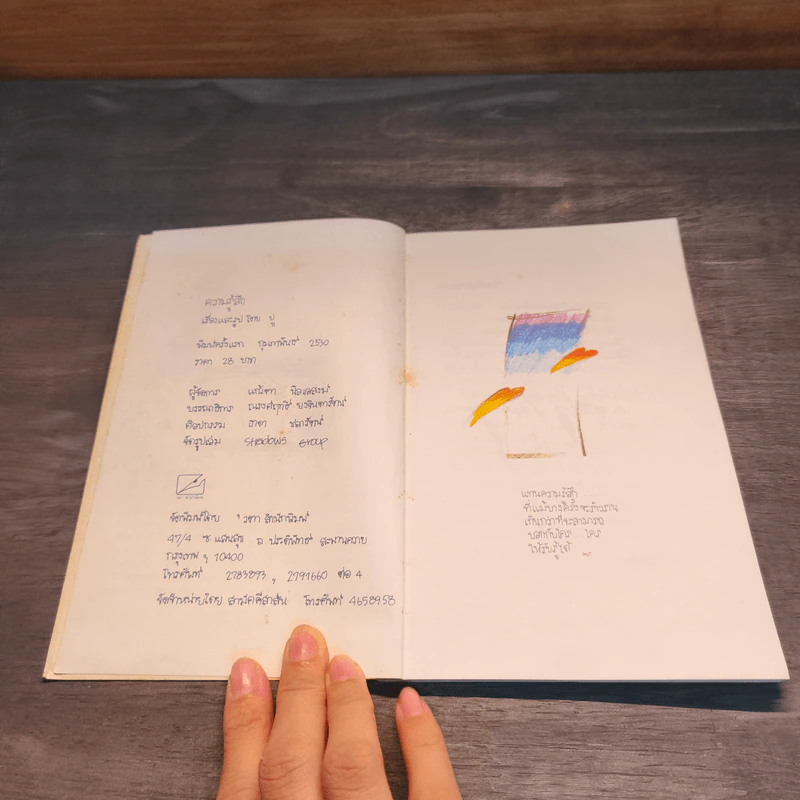 ความรู้สึก
เรื่องและรูป โดย ปู
พิมพ์ครั้งแรก กุมภาพันธ์ 2530
ราคา 28 บาท
ผู้จัดการ
บรรณาธิการ ณรงค์ฤทธิ์
ศิลปกรรม
จัดรูปเล่ม SHADOWS GROUP
จัดพิมพ์โดย วตา สำนักพิมพ์
47/4 ซ แสนสุข ถ ประดิพัทธ์ สะพานควาย
กรุงเทพ ฯ 10400
โทรศัพท์ 2783893 , 2791660 ต่อ 4
จัดจำหน่ายโดย สามัคคีสาส์น โทรศัพท์ 4658958
แทนความรู้สึก
ที่แม้บางครั้งจะ
เกินกว่าที่จะสามารถ
บอกกับใคร ใคร
ให้รับรู้ได้